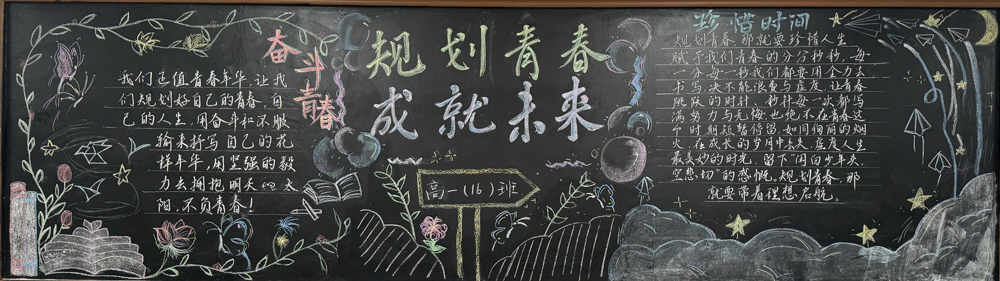 奋斗青春
我们正值青春年华,让我
们规划好自己的青春,自
己的人生,用奋斗和不服
输来抒写自己的花
样年华,用坚强的毅
力去拥抱明天的太
阳,不负青春!
规划青春
成就未来
高一(16)班
珍惜时间
规划青春,那就要珍惜人生
赋予我们青春的分分秒秒,每
一分每一秒我们都要用全力去
书写,决不能浪费与虚度,让青春
跳跃的时针、秒针每一次都写
满努力与无悔,也绝不在青春这
个时期短暂停留,如同绚丽的烟
火,在成长的岁月中丢失,虚度人生
最美妙的时光,留下“闲白少年头,
空悲切”的感慨。规划青春,那
就要带着理想启航。